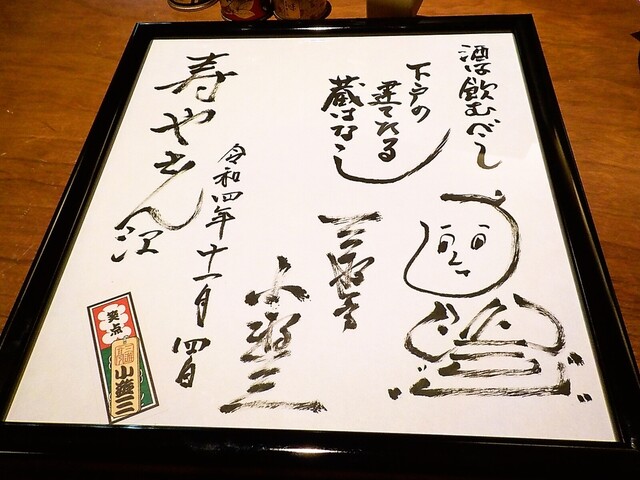 酒は飲むべし
下戸の
建てたる
蔵はなし
三遊亭
小遊三
令和四年十一月四日
寿やさん江
笑点
小遊三